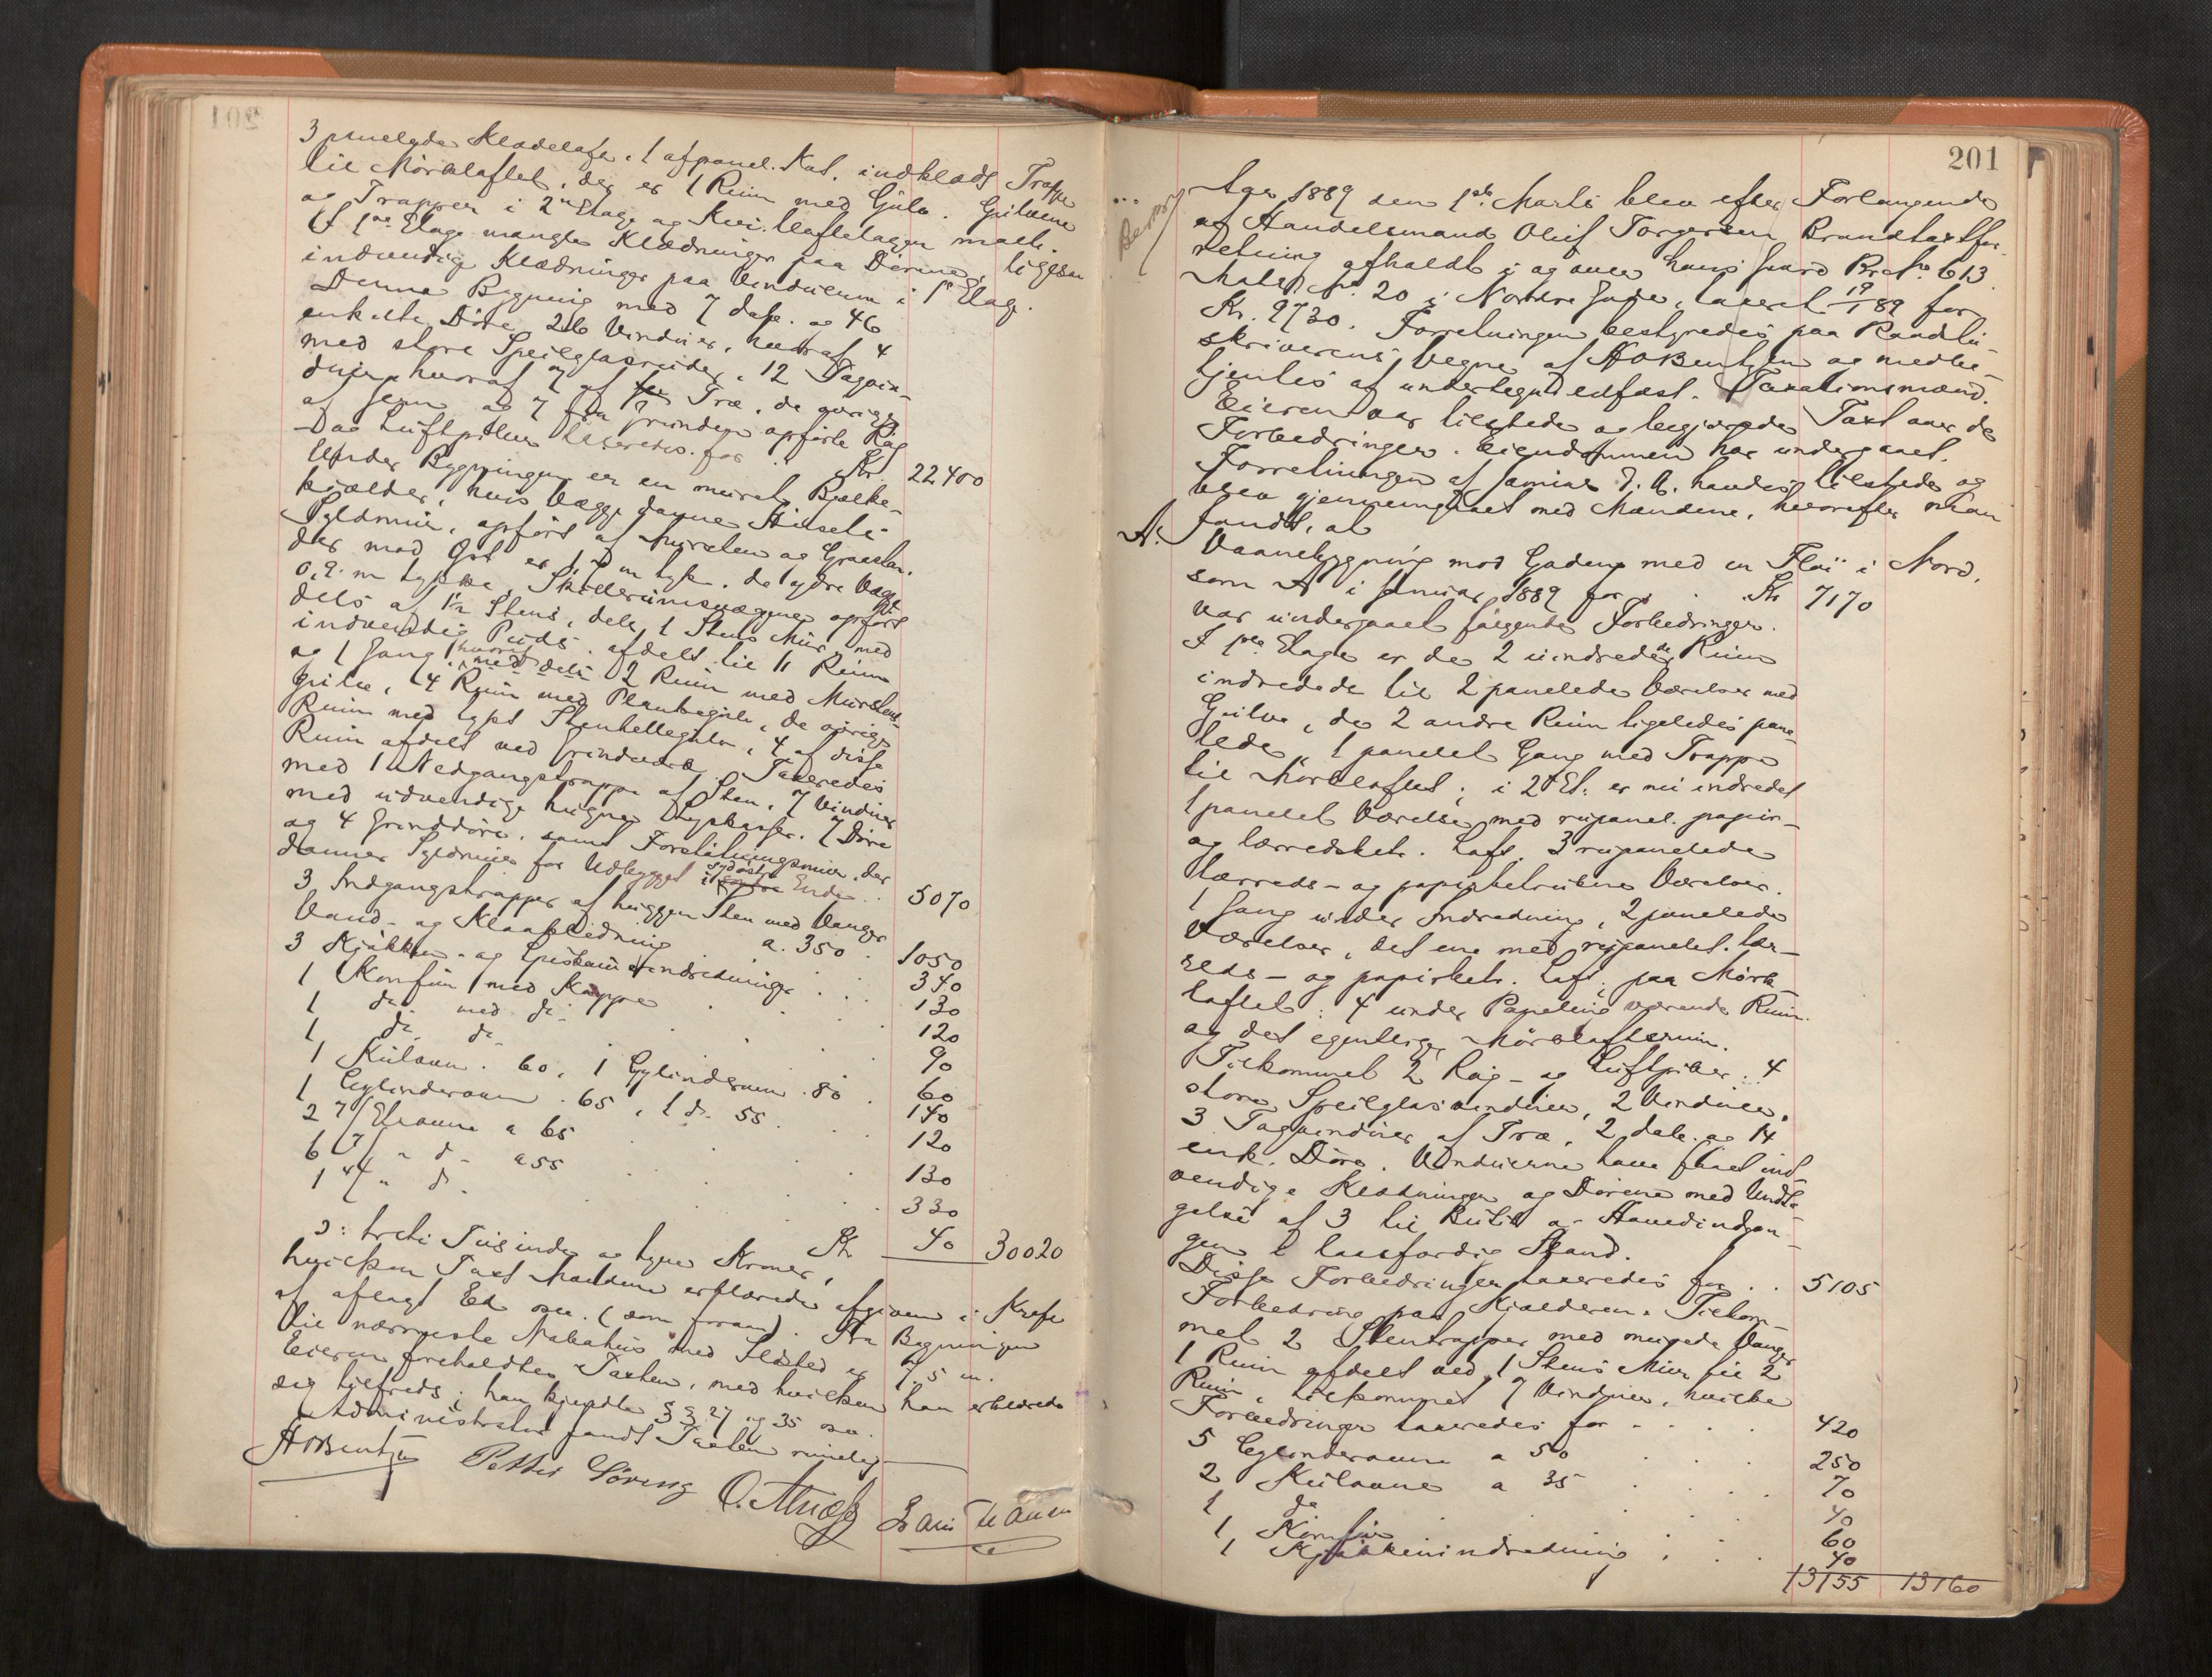 3 panelede Klædelofte, 1 afpanel. Kot, indklædt Trappe
til Mørkloftet, der er 1 Rum med Gulv. Gulvene
og Trapper i 2den Etage og Kvistloftetagen malt.
I 1ste Etage mangler Klædninger paa Dørene, ligesaa
indvendig Klædninger paa Vinduerne i 1ste Etage.
Denne Bygning med 7 dobb. og 46
enkelte Døre, 26 Vinduer, hvoraf 4
med store Speilglasruder, 12 Tagvin-
duer, hvoraf 7 af Træ, de øvrige
af Jern og 7 fra Grunden opførte Røg
og Luftpiber taxeredes for Kr. 22400
Under Bygningen er en muret Bjælke-
kjælder, hvis Vægge danne Husets
Syldmur, opført af Mursten og Graasten.
der mod Øst er 1,5 m tyk, de øvre Vægge
0,9 m tykke, Skillerumsvæggene opført
dels af 1½ Stens, dels 1 Stens Mur, med
indvendig Puds, afdelt til 11 Rum
og 1 Gang, hvoraf 2 Rum med Murstens-
gulve, 4 Rum med Plankegulv, de øvrige
Rum med lagt Stenhellegulv, 4 af disse
Rum afdelt ved Grindværk. Taxeredes
med 1 Nedgangstrappe af Sten, 7 Vinduer
med udvendige hugne Lyskasser, 7 Døre
og 4 Grinddøre, samt Forstøtningsmur, der
danner Syldmur for Udbygget i sydøstre Ende .. 5070
3 Indgangstrapper af huggen Sten med Vanger
a. 350 . 1050
Vand- og Kloakledning 340
3 Kjøkken- og Spiskammerindredninger ... 130
1 Komfur med Kappe 120
1 do med do 90
1 do do 60
1 Kulovn . 60, 1 Cylinderovn . 80 . 140
1 Cylinderovn . 65, 1 do 55 . 120
2 7/ Etovne a 65 130
6 7/ " do a 55 330
1 4/ " do Kr. 40 30020
ɔ: treti Tusinde og tyve Kroner,
hvilken Taxt Mændene erklærede afgiven i Kraft
af aflagt Ed osv. (som foran). Fra Bygningen
til nærmeste Nabohus med Ildsted er 7,5 m.
Eieren foreholdtes Taxten, med hvilken han erklærede
sig tilfreds; han kjendte §§ 27 og 35 osv.
Administrator fandt Taxten rimelig
AOBentzen Petter Søreng O. Alnæs Lars Hansen
201
Aar 1889 den 1ste Marts blev efter Forlangende
af Handelsmand Oluf Torgersen Brandtaxtfor-
retning afholdt i og over hans Gaard Br. No 613
Matr. No 20 i Nordre Gade, taxeret 19/1 89 for
Kr. 9730. Forretningen bestyredes paa Raadstu-
skriverens Vegne af AOBentzen og medbe-
tjentes af undertegned edfæst. Taxationsmænd.
Eieren var tilstede og begjærede Taxt over de
Forbedringer Eiendommen har undergaaet.
Forretningen af Januar d. A. havdes tilstede og
blev gjennemgaaet med Mændene, hvorefter man
fandt, at
A. Vaanebygning mod Gaden med en Fløi i Nord,
som A i Januar 1889 for . . Kr 7170
var undergaaet følgende Forbedringer.
I 1ste Etage er de 2 uindredede Rum
indredede til 2 panelede Værelser med
Gulve, de 2 andre Rum ligeledes pane-
lede, 1 panelet Gang med Trappe
til Mørkloftet; i 2den Et. er nu indredet
1 panelet Værelse med rupanel. papir-
og lærredsbetr. Loft. 3 rupanelede
lærreds- og papirbetrukne Værelser.
1 Gang under Indredning, 2 panelede
Værelser, det ene med rupanelet. lær-
reds- og papirbetr. Loft; paa Mørk-
loftet: 4 under Paneling værende Rum.
og det egentlige Mørkloftsrum.
Tilkommet 2 Røg- og Luftpiber. 4
store Speilglasvinduer, 2 Vinduer,
3 Tagvinduer af Træ, 2 dob. og 14
enk. Døre. Vinduerne have faaet ind-
vendige Klædninger og Dørene med Undta-
gelse af 3 til Butik og Hovedindgan-
gen i laasfærdig Stand.
Disse Forbedringer taxeredes for . . 5105
Forbedring paa Kjælderen. Tilkom-
met 2 Stentrapper med murede Vanger
1 Rum afdelt ved 1 Stens Mur til 2
Rum, tilkommet 7 Vinduer, hvilke
Forbedringer taxeredes for - . . . 420
5 Cylinderovne a 50 . . . 250
2 Kulovne a 35 . . . . 70
1 do . . . . 40
1 Komfur . . . . 60
1 Kjøkkenindredning . . . 40
13155 13160